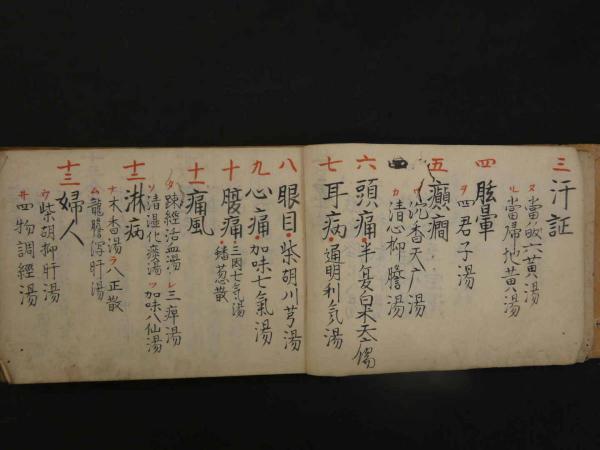 三 汗証
ヌ 當皈六黄湯
ル 當歸地黄湯
四 眩暈
ヲ 四君子湯
五 癲癇
沈香天广湯
カ 清心抑膽湯
六 頭痛・半夏白朮天广湯
七 耳病・通明利気湯
八 眼目・柴胡川芎湯
九 心痛・加味七氣湯
十 腹痛・三因七氣湯
・蟠葱散
十一 痛風
タ 疎經活血湯 レ 三痺湯
ソ 清湿化痰湯 ツ 加味八仙湯
十二 淋病
ナ 木香湯 ラ 八正散
ム 龍膽瀉肝湯
十三 婦人
ウ 柴胡抑肝湯
ヰ 四物調經湯